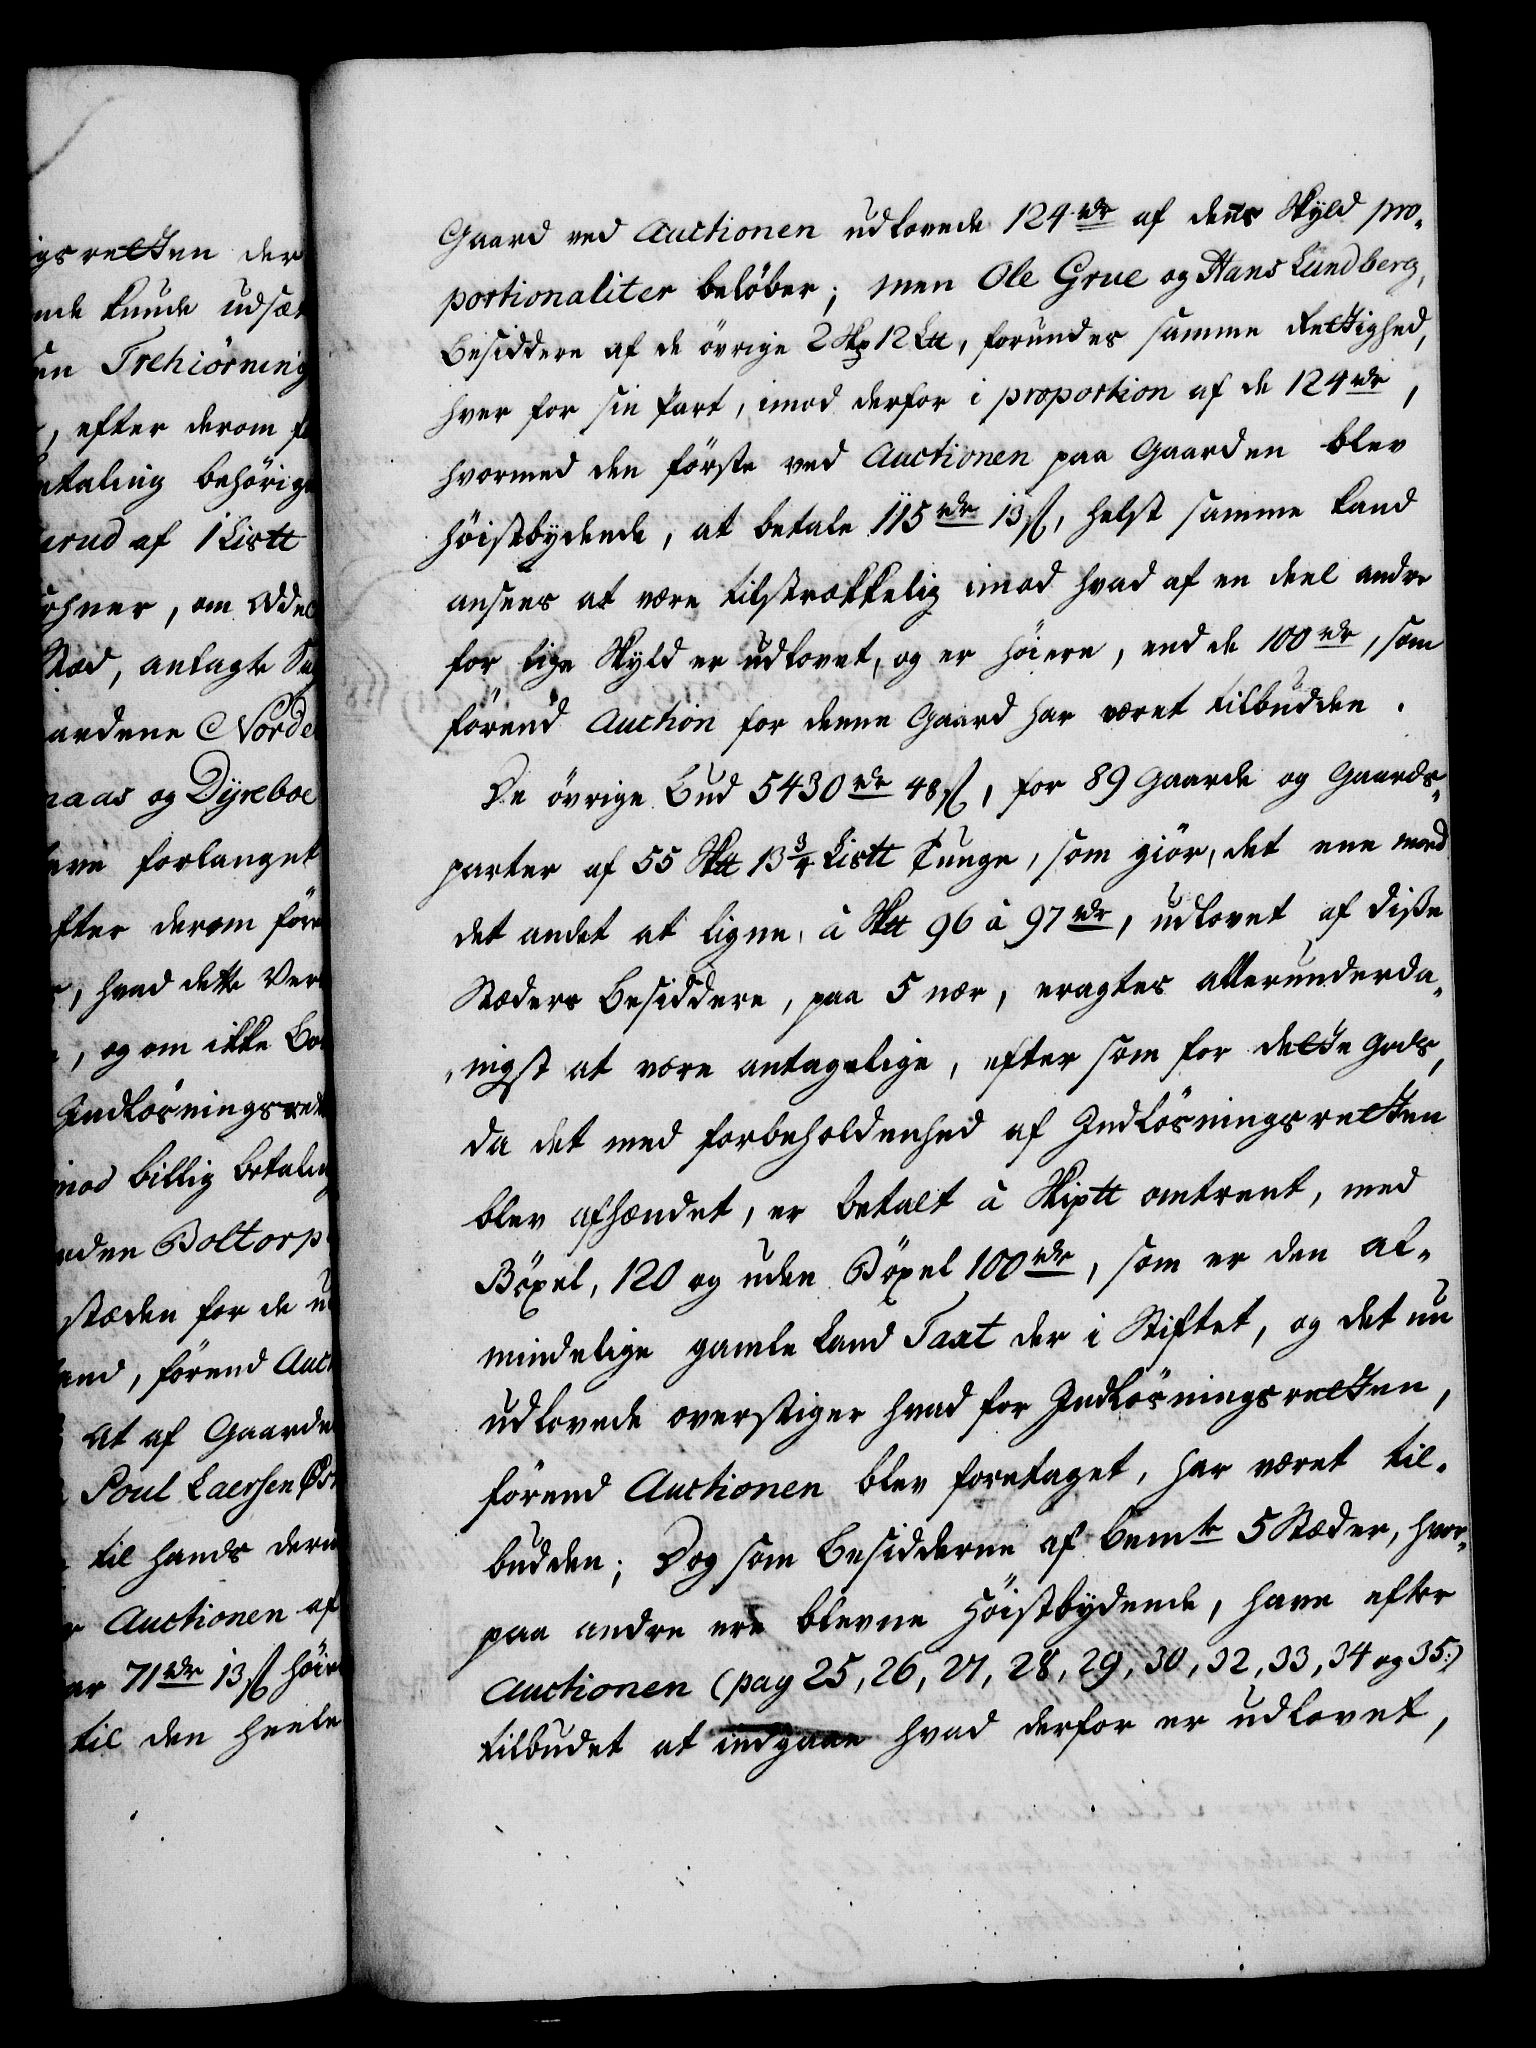 gsretten der
nde kunde udsæt
en Trehiörning
, efter derom
etaling behörige
erud af 1 Listt
ohner, om Odel
Stæd, anlagte
aardene Norde
naas og Dyreboe
eve forlanget
fter derom före
, hvad dette Ver
, og om ikke
Indlösningsret
mod billig betaling
rden Boltorp
stæden for de
and, förend Auct
At af Gaarde
Poul Laersen
til hands
r Auctionen af
er 71 rdr 13 ß höie
til den heele
Gaard ved Auctionen udlovede 124 rdr af dens Skyld pro-
portionaliter belöber; men Ole Grue og Hans Lundberg,
Besiddere af de övrige 2 Skp 12 Ltt, forundes samme Rettighed,
hver for sin Part, imod derfor i proportion af de 124 rdr,
hvormed den förste ved Auctionen paa Gaarden blev
höistbydende, at betale 115 rdr 13 ß, helst samme kand
ansees at være tilstrækkelig imod hvad af en deel andre
for lige Skyld er udlovet, og er höiere, end de 100 rdr, som
förend Auction for denne Gaard har været tilbudden.
De övrige Bud 5430 rdr 48 ß, for 89 Gaarde og Gaards-
parter af 55 Sktt 13 3/4 Listt Tunge, som giör, det ene med
det andet at ligne, à Sktt 96 à 97 rdr, udlovet af disse
Stæders Besiddere, paa 5 nær, eragtes allerunderda-
nigst at være antagelige, efter som for dette Gods,
da det med forbeholdenhed af Indlösningsretten
blev afhændet, er betalt à Skiptt omtrent, med
Böxel, 120 og uden Böxel 100 rdr, som er den al-
mindelige gamle Land Taxt der i Stiftet, og det nu
udlovede overstiger hvad for Indlösningsretten,
förend Auctionen blev foretaget, har været til-
budden; Dog som Besidderne af bemte 5 Stæder, hvor-
paa andre ere blevne Höistbydende, have efter
Auctionen (pag 25, 26, 27, 28, 29, 30, 32, 33, 34 og 35:)
tilbudet at indgaae hvad derfor er udlovet,